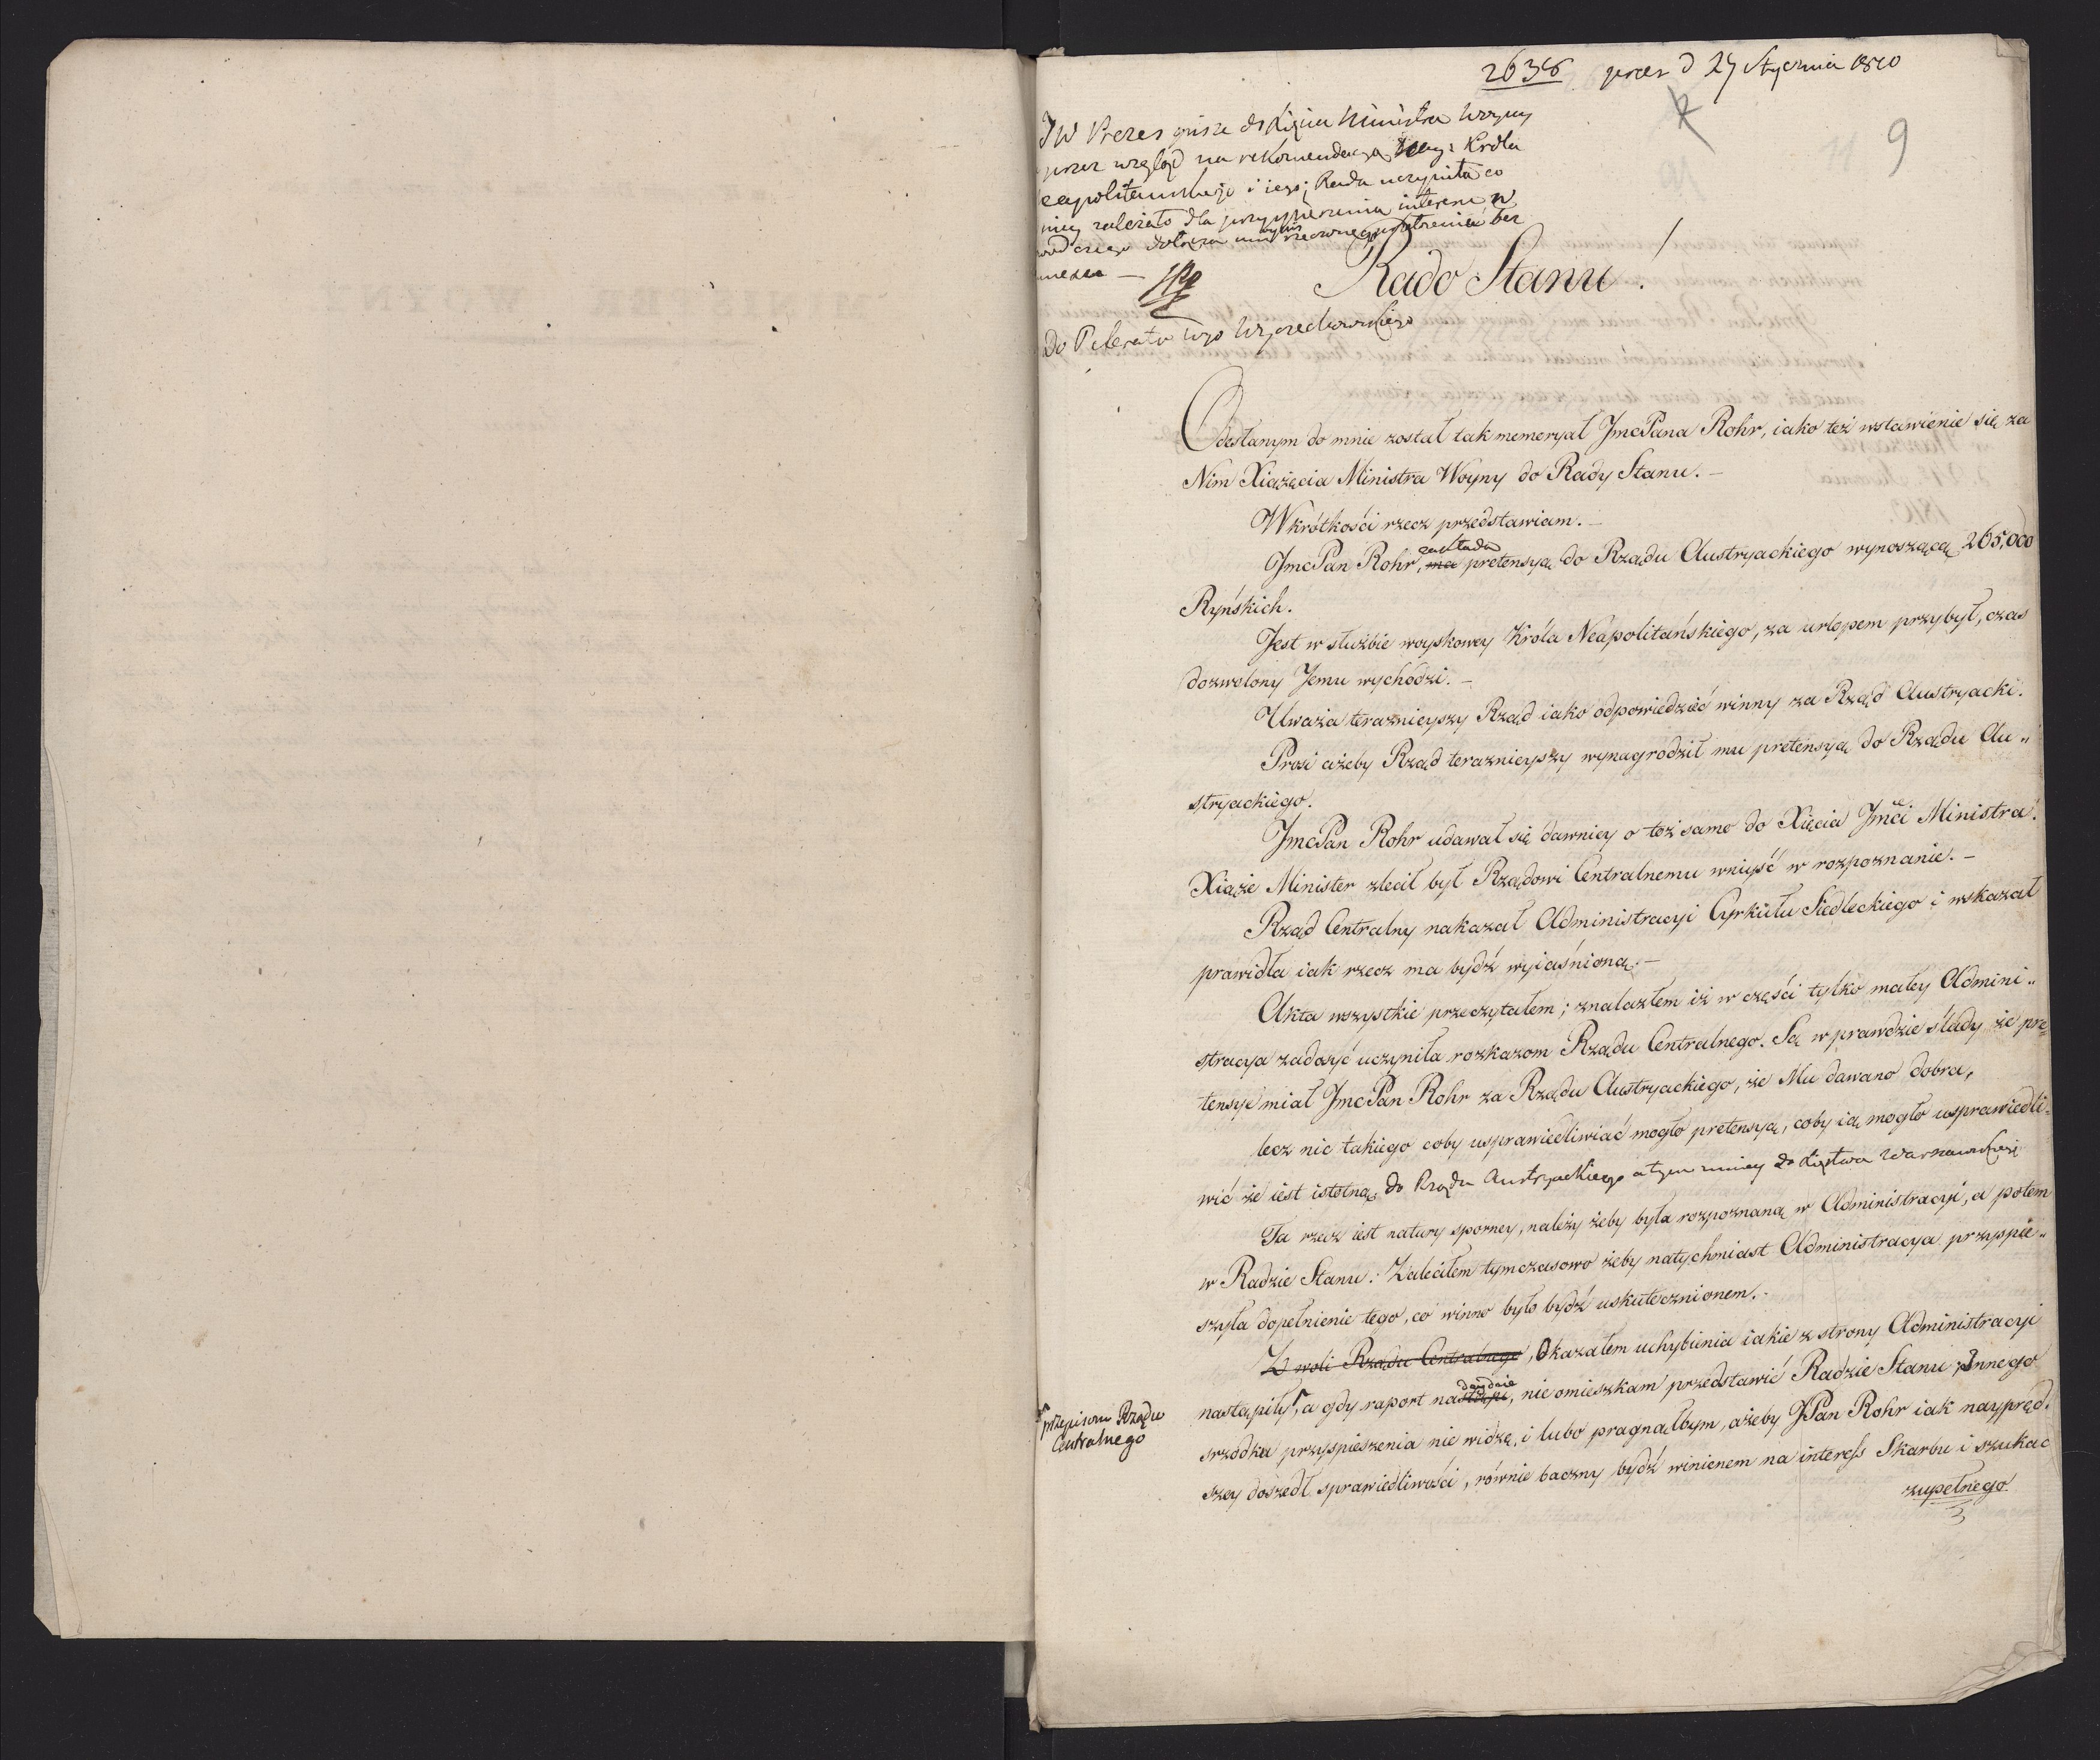 2638 prez d 27 Stycznia 1810
9
JW Prezes pisze do Xięcia Ministra Woyny
przez wzgląd na rekomendacyą Króla
Neapolitańskiego i iego; Rada uczyniła co
niey zależało dla przyspieszenia interesu, w
dowód czego dołącza
Rado Stanu!
Do Referatu Wgo Wyczechowskiego
Odesłanym do mnie został tak memoryał JmcPana Rohr, iako też wstawienie się za
Nim Xiążęcia Ministra Woyny do Rady Stanu. –
Wkrótkości rzecz przedstawiam. –
zakłada
JmcPan Rohr, ma pretensyą do Rządu Austryackiego wynoszącą 265,000
Ryńskich.
Jest w służbie woyskowey Króla Neapolitańskiego, za urlopem przybył, czas
dozwolony Jemu wychodzi. –
Uważa teraznieyszy Rząd iako odpowiedzieć winny za Rząd Austryacki.
Prosi ażeby Rząd teraznieyszy wynagrodził mu pretensyą do Rządu Au„
stryackiego.
JmcPan Rohr udawał się dawniey o toż samo do Xięcia Jmći Ministra.
Xiąże Minister zlecił był Rządowi Centralnemu wniyść w rozpoznanie. –
Rząd Centralny nakazał Administracyi Cyrkułu Siedleckiego i wskazał
prawidła iak rzecz ma bydź wyiaśnioną. –
Akta wszystkie przeczytałem; znalazłem iż w części tylko małey Admini„
stracya zadosyć uczyniła rozkazom Rządu Centralnego. Są wprawdzie ślady że pre„
tensye miał JmcPan Rohr za Rządu Austryackiego, że Mu dawano dobra,
lecz nic takiego coby usprawiedliwiać mogło pretensyą, coby ią mogło usprawiedli„
wić że iest istotną do Rządu Austryackiego a tym mniey do Xięstwa Warszawskiego
Ta rzecz iest natury sporney, należy żeby była rozpoznaną w Administracyi, a potem
w Radzie Stanu. Zaleciłem tymczasowo żeby natychmiast Administracya przyspie„
szyła dopełnienie tego, co winno było bydź uskutecznionem. –
Z woli Rządu Centralnego, Okazałem uchybienia iakie z strony Administracyi
nastąpiły, a gdy raport nastąpi, nie omieszkam przedstawić Radzie Stanu; Innego
nadeydzie
przepisom Rządu
Centralnego
srzodka przyspieszenia nie widzę, i lubo pragnąłbym, ażeby JPan Rohr iak naypręd„
szey doszedł sprawiedliwości, równie baczny bydź winienem na interess Skarbu i szukać
zupełnego